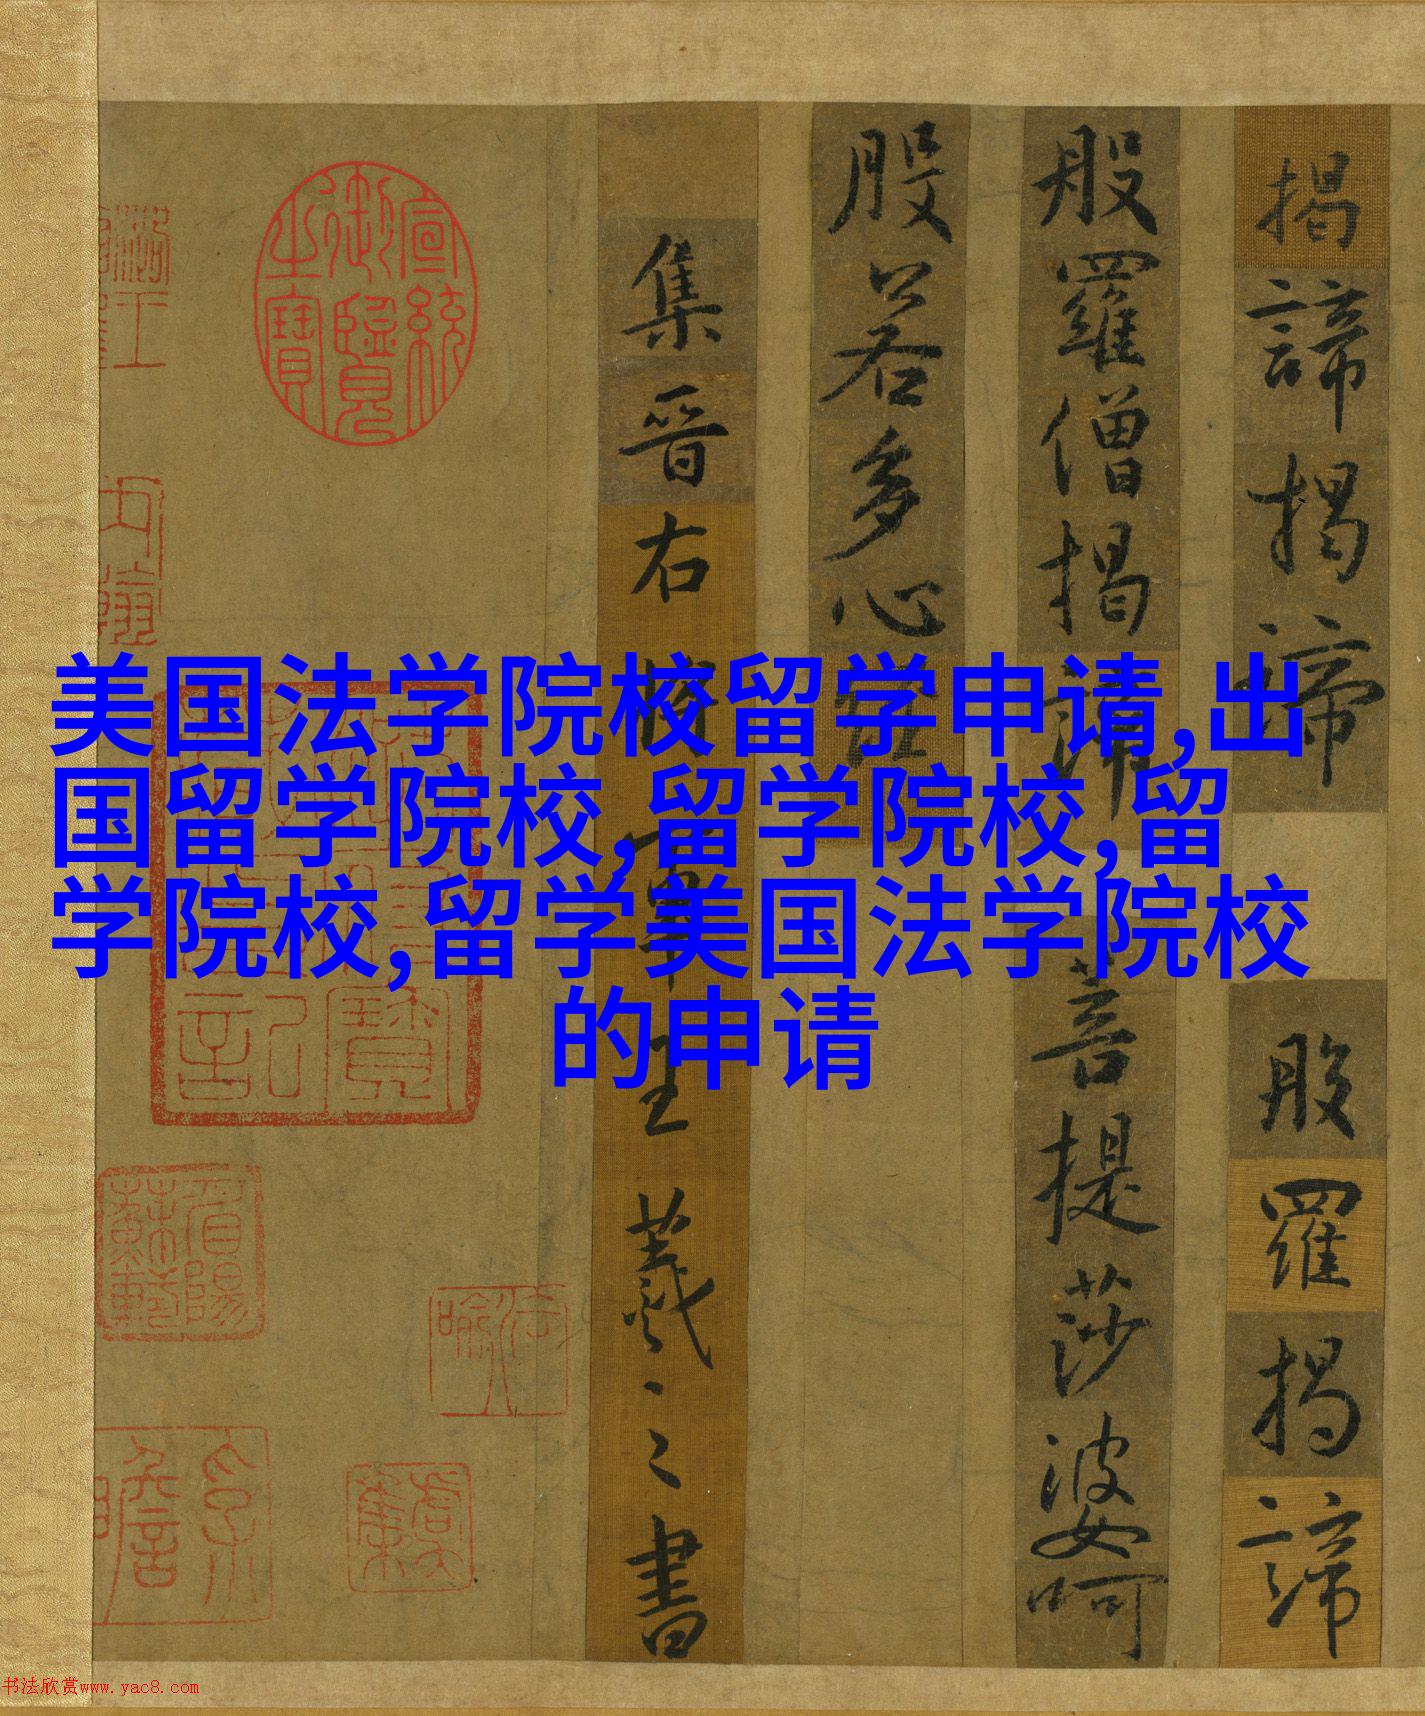 美国法学院校留学申请,出
国留学院校,留学院校,留
学院校,留学美国法学院校
的申请
揭諦揭諦 般羅揭諦
般羅僧揭諦 菩提莎婆呵
般若多心經
集晉右將軍王羲之書
宣統御覽之寶
书法欣赏www.yac8.com